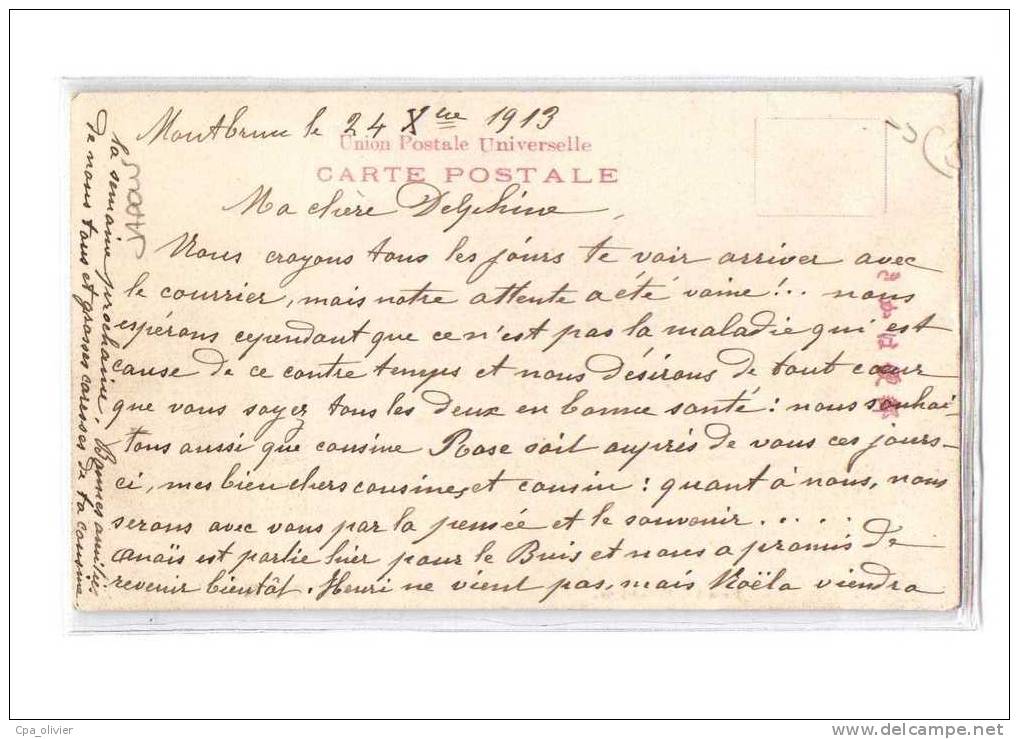 Montbrun le 24 Xbre 1913
Union Postale Universelle
CARTE POSTALE
Ma chère Delphine,
Nous croyons tous les jours te voir arriver avec
le courrier, mais notre attente a été vaine!.. nous
espérons cependant que ce n'est pas la maladie qui est
cause de ce contre temps et nous désirons de tout cœur
que vous soyez tous les deux en bonne santé : nous souhai-
tons aussi que cousine Rose soit auprès de vous ces jours-
ci, mes bien chers cousines et cousin : quant à nous, nous
serons avec vous par la pensée et le souvenir....
Anaïs est partie hier pour le Buis et nous a promis de
revenir bientôt. Henri ne vient pas, mais Noëla viendra
la semaine prochaine. Bonnes amitiés
de nous tous et grosses caresses de ta cousine
Cpa_olivier
www.delcampe.net